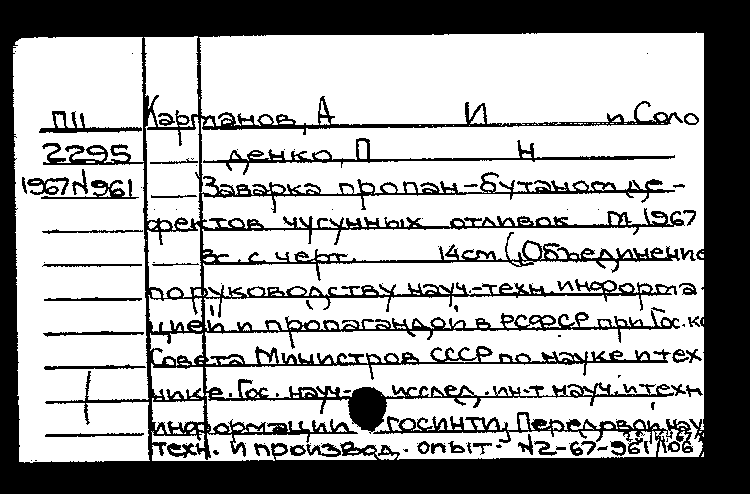 П11 Карманов, А И и Соло
2295 денко, П Н
1967 N961 Заварка пропан-бутаном де-
фектов чугунных отливок М, 1967
8с. с черт. 14см (Объединение
по руководству науч.-техн. информа-
цией и пропагандой в РСФСР при Гос. ко
Совета Министров СССР по науке и тех
нике. Гос. науч.- исслед. ин-т науч. и техн
информации ГОСИНТИ, Передовой нау
техн. и производ. опыт. N2-67-961/106